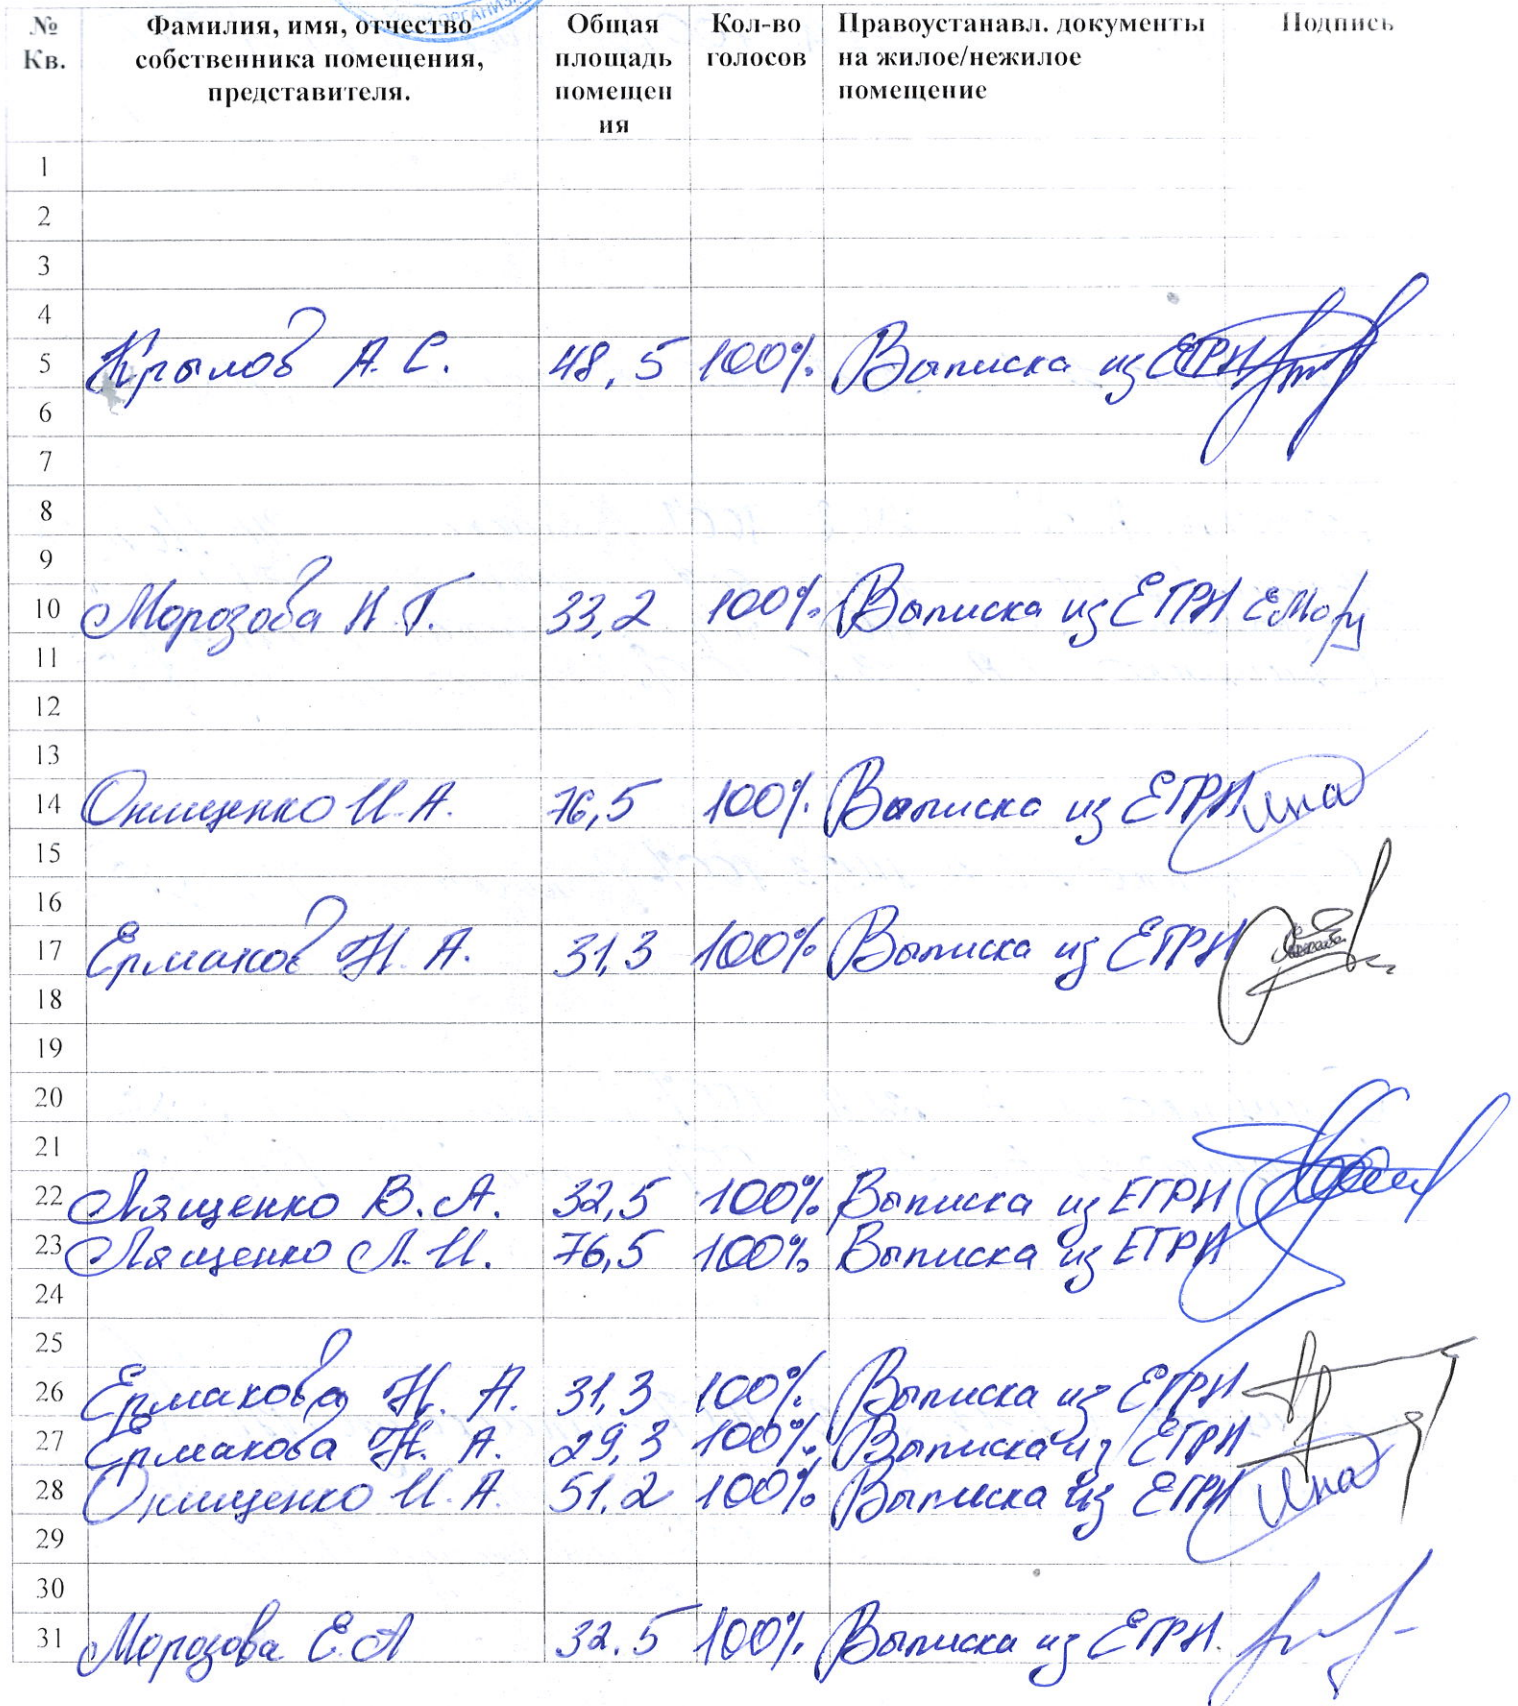 № Кв. Фамилия, имя, отчество собственника помещения, представителя. Общая площадь помещен ия Кол-во голосов Правоустанавл. документы на жилое/нежилое помещение Подпись
1
2
3
4
5 Крылов А. С. 48,5 100% Выписка из ЕГРН
6
7
8
9
10 Морозова Н. Г. 33,2 100% Выписка из ЕГРН
11
12
13
14 Онищенко И. А. 76,5 100% Выписка из ЕГРН
15
16
17 Ермаков Н. А. 31,3 100% Выписка из ЕГРН
18
19
20
21
22 Лященко В. А. 32,5 100% Выписка из ЕГРН
23 Лященко Л. И. 76,5 100% Выписка из ЕГРН
24
25
26 Ермакова Н. А. 31,3 100% Выписка из ЕГРН
27 Ермакова Н. А. 29,3 100% Выписка из ЕГРН
28 Онищенко И. А. 51,2 100% Выписка из ЕГРН
29
30
31 Морозова Е. А 32.5 100% Выписка из ЕГРН.